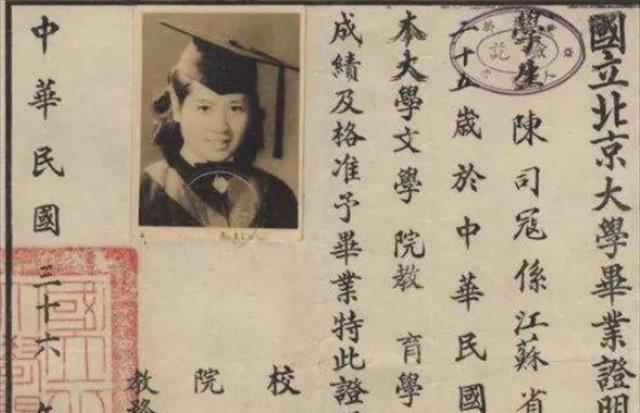 國立北京大學畢業證明
學生陳司冦係江蘇省
二十五歲於中華民國
本大學文學院教育學
成績及格准予畢業特此證
校
院
教務
中華民國三十六年